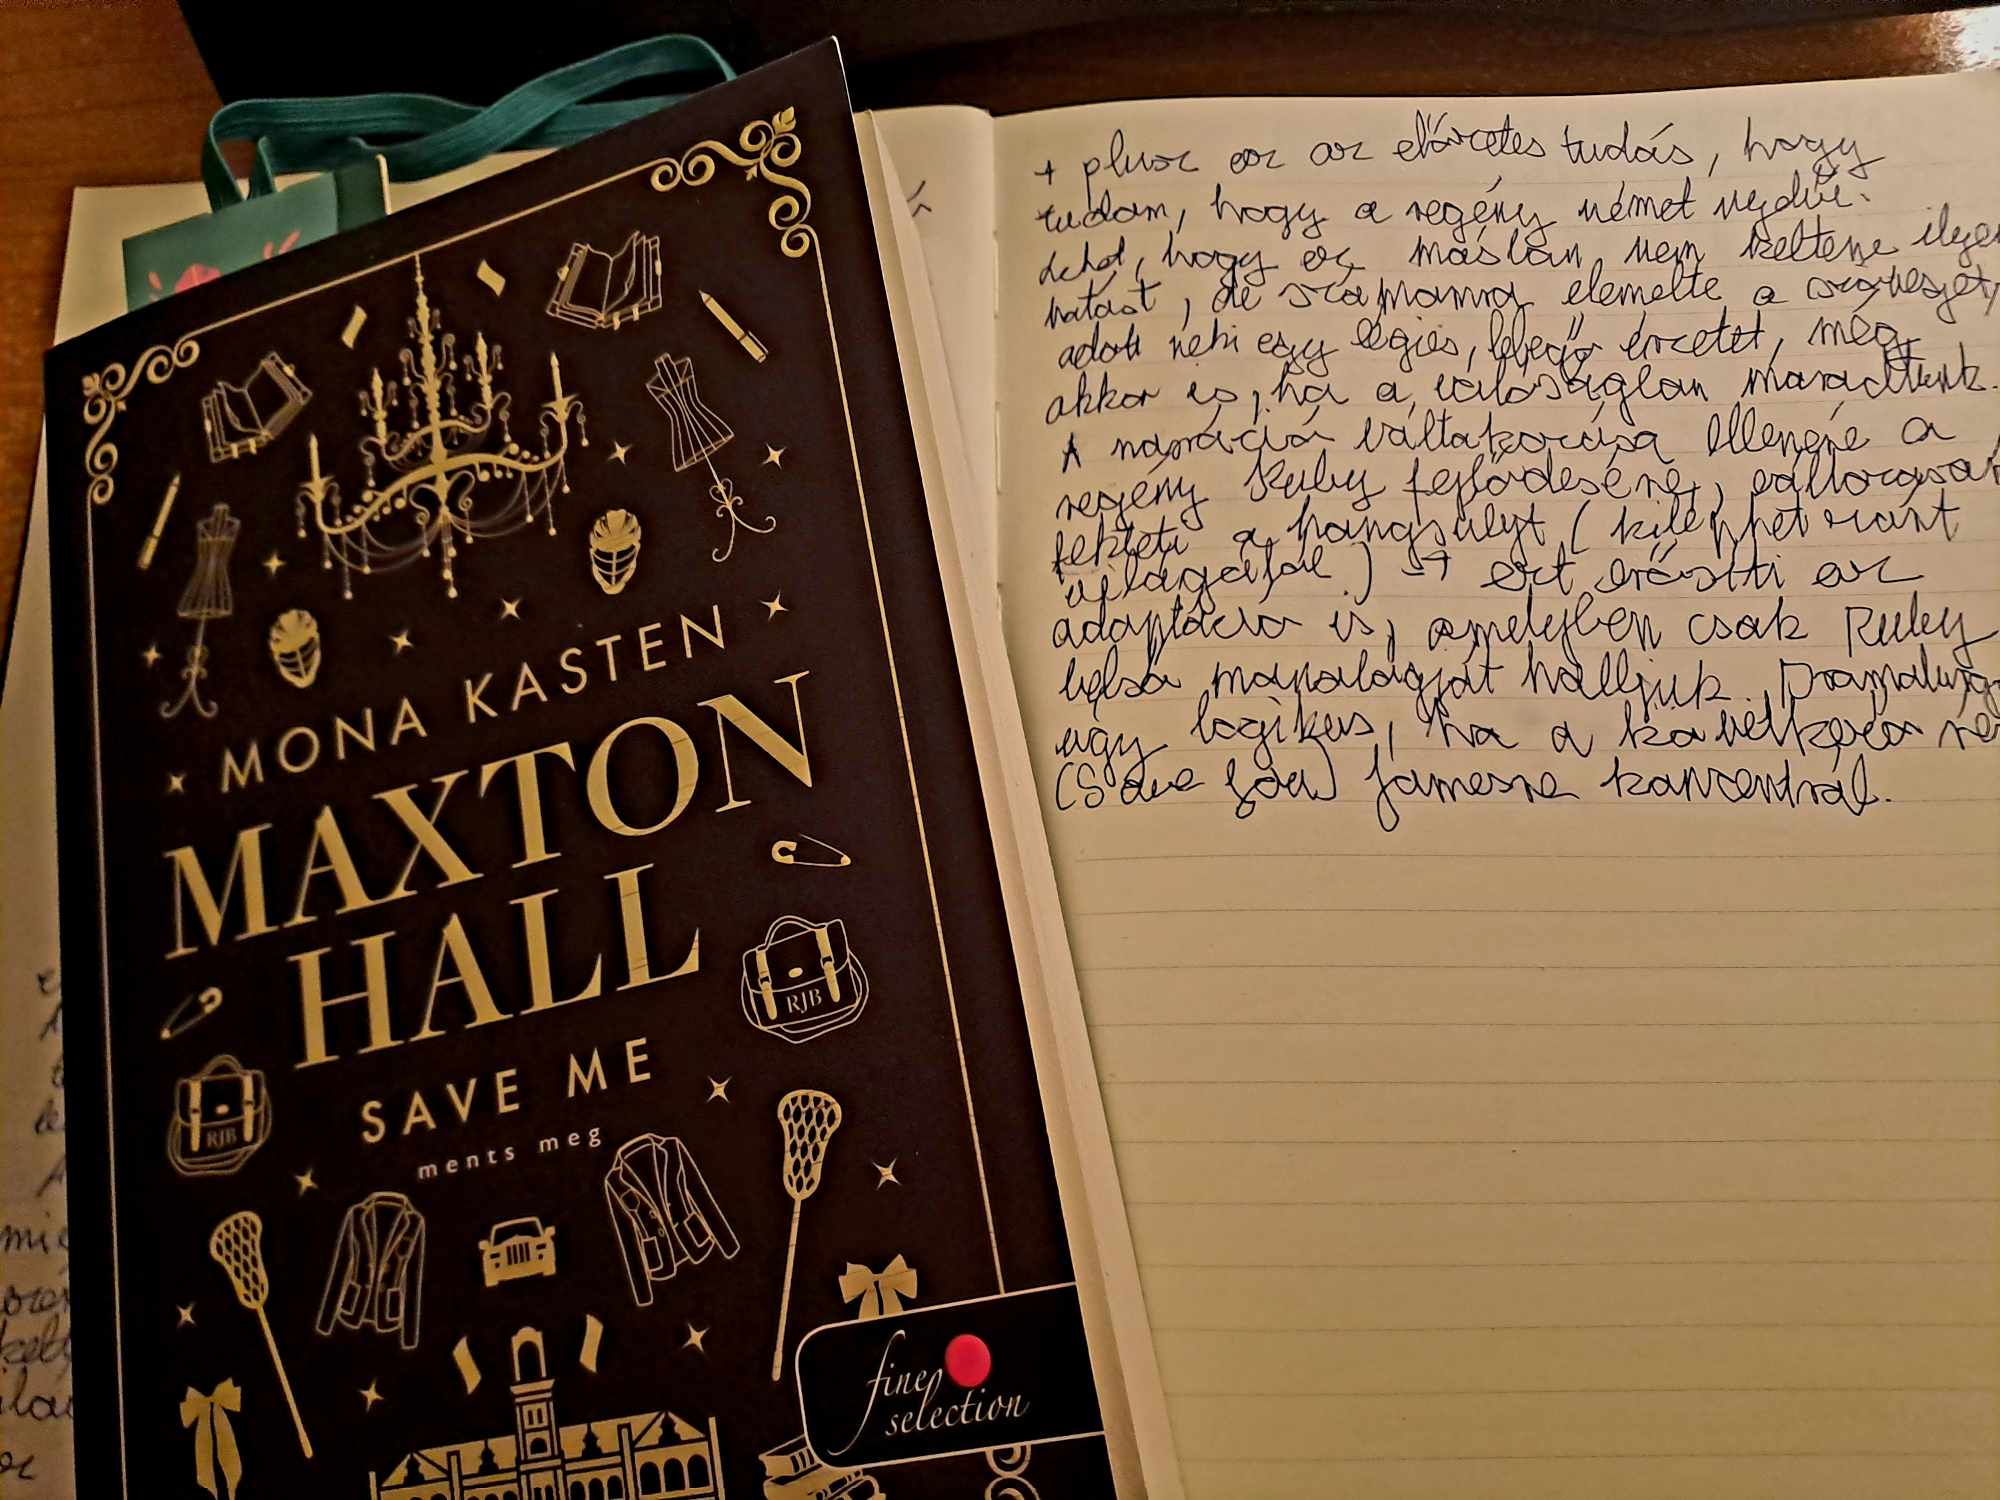 MONA KASTEN
MAXTON
HALL
SAVE ME
ments meg
RJB
RJB
fine
selection
+ plusz ez az előzetes tudás, hogy
tudom, hogy a regény német nyelvű.
Lehet, hogy ez másban nem keltene ilyen
hatást, de számomra elemelte a szöveget,
adott neki egy légies, lebegő érzetet, még
akkor is, ha a valóságban maradtunk.
A narráció váltakozása ellenére a
regény Ruby fejlődésére, változására
fekteti a hangsúlyt (kiléphet
világából) → ezt erősíti az
adaptáció is, amelyben csak Ruby
belső monológját halljuk.
úgy logikus, ha a következő
(Save You) Jamesre koncentrál.
mié